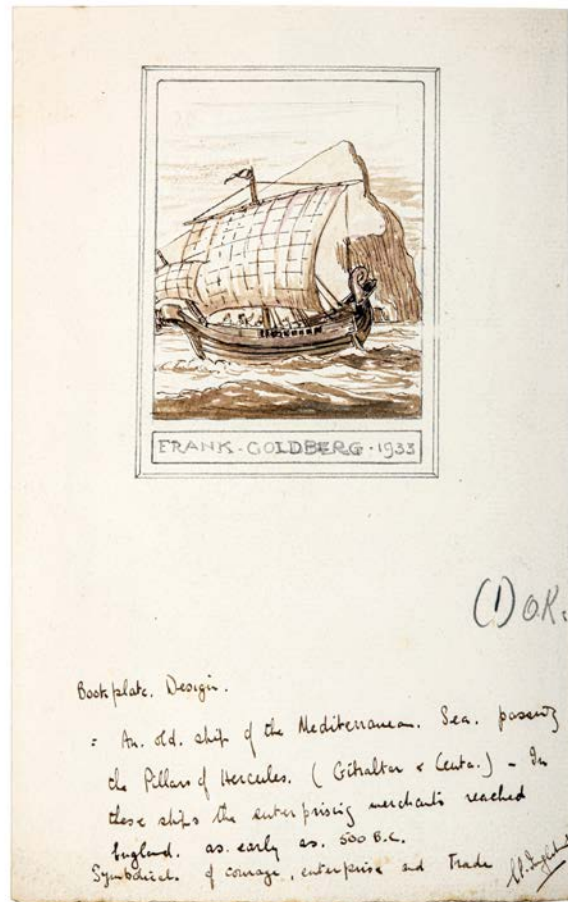 FRANK · GOLDBERG · 1933
(1) O.K.
Bookplate. Design.
: An. old. ship of the Mediterranean. Sea. passing
the Pillars of Hercules. (Gibraltar & Ceuta.) – In
these ships the enterprising merchants reached
England. as early as. 500 B.C.
Symbolical. of courage, enterprise and Trade